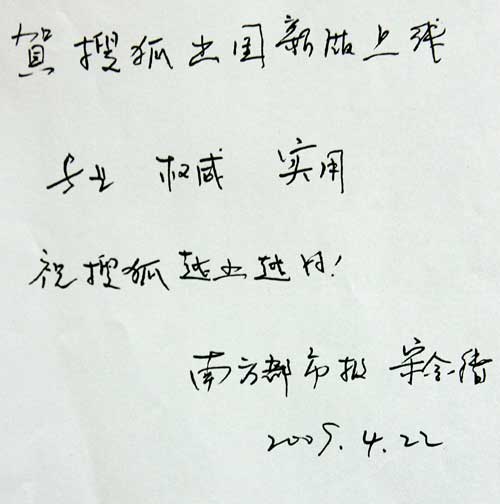 賀搜狐出国新版上线
专业 权威 实用
祝搜狐越出越好!
南方都市报 宋金
2009.4.22